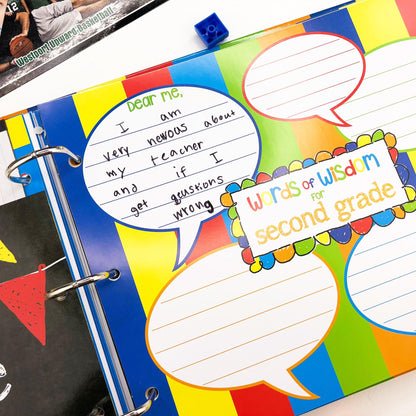 Westport Upward Basketball
Dear Me,
I am
very nervous about
my teacher
and if I
get qeustions
wrong
Words of Wisdom
for
second grade